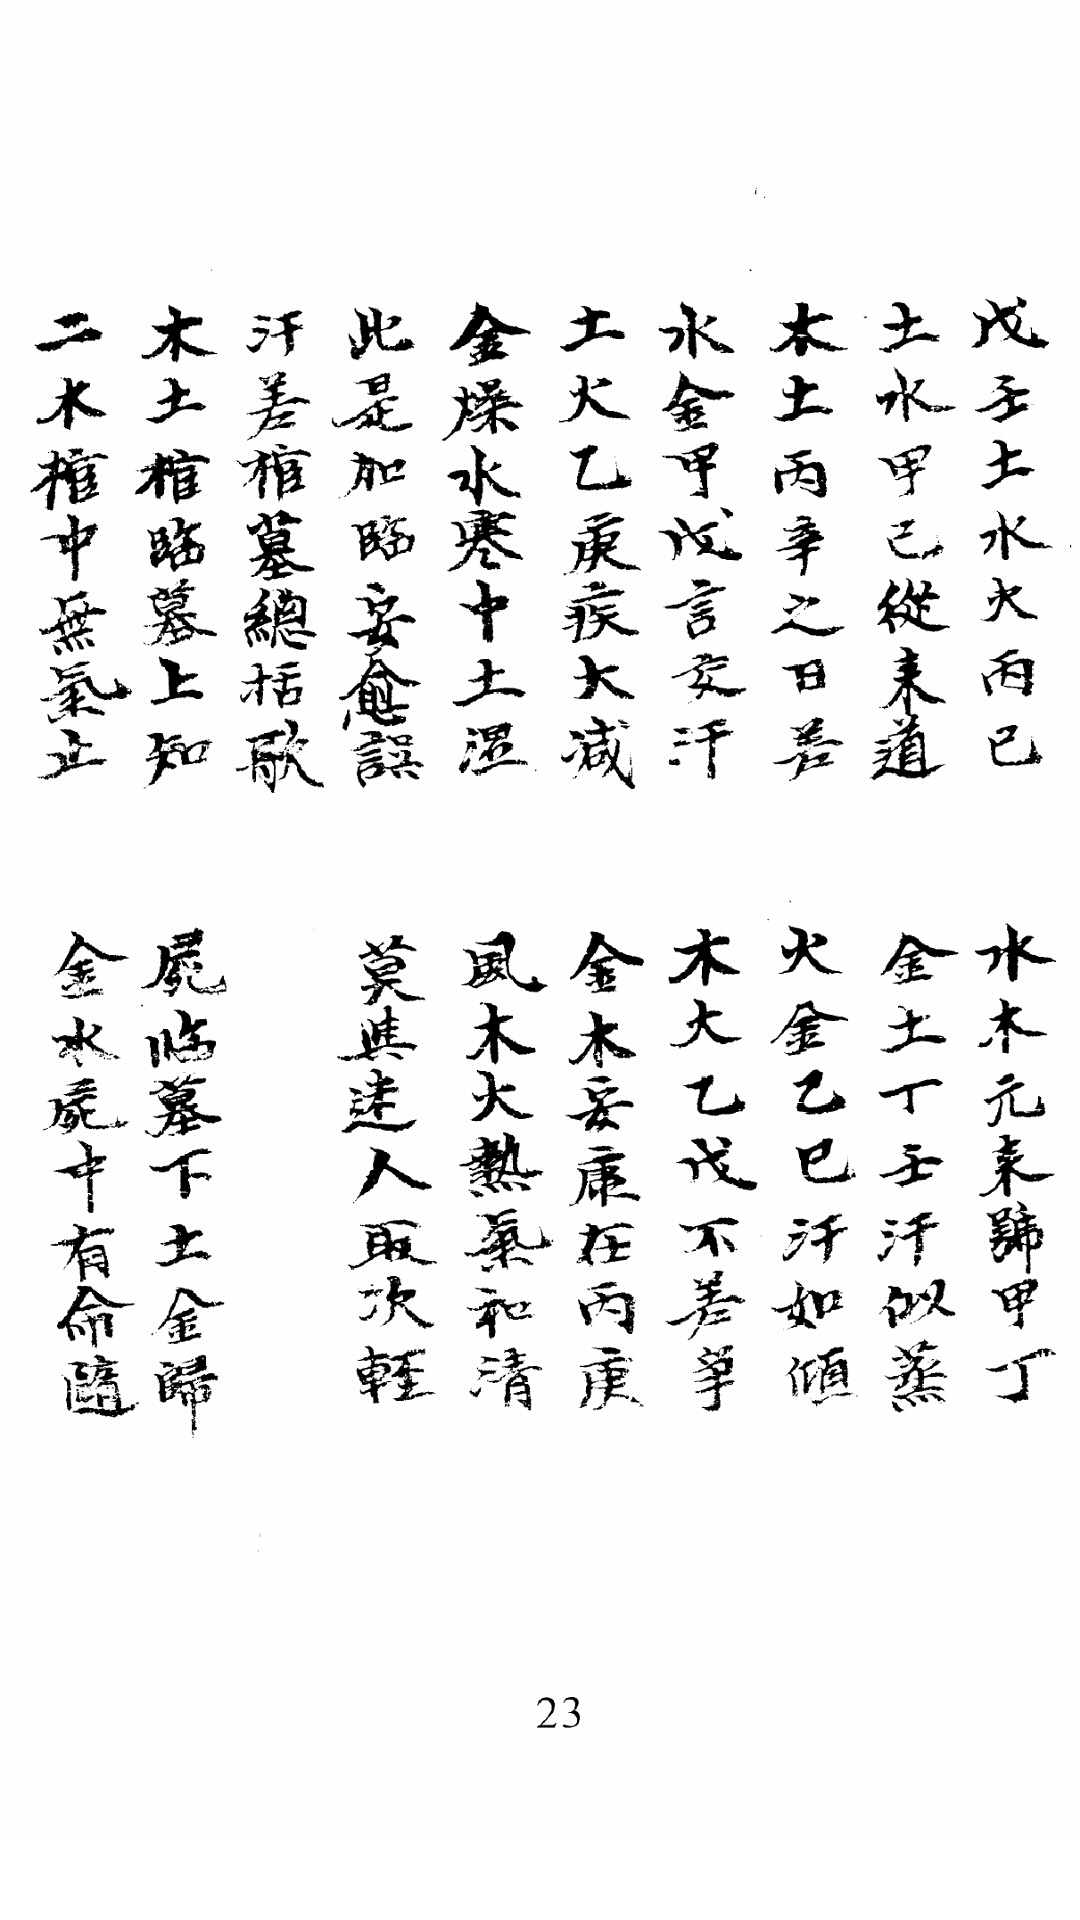 戊壬土水火丙己 水木元来號甲丁
土水甲己從来道 金土丁壬汗似蒸
木土丙辛之日差 火金乙巳汗如傾
水金甲戊言交汗 木火乙戊不差争
土火乙庚疾大减 金木妥康在丙庚
金燥水寒中土湿 風木火熱氣和清
此是加臨妥愈誤 莫與迷人取次輕
汗差棺墓總括歌
木土棺臨墓上知 屍临墓下土金歸
二木棺中無氣止 金水屍中有命隨
23